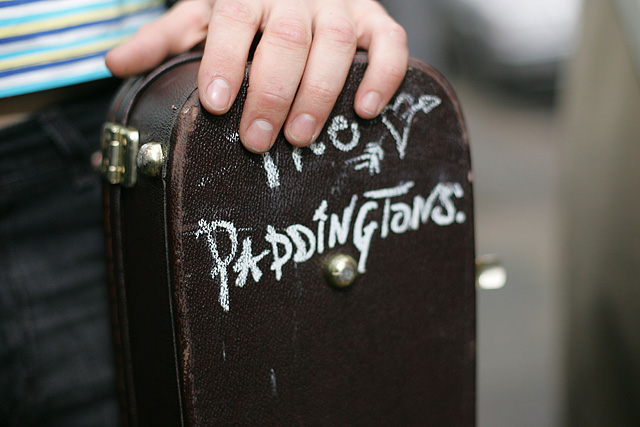 The
PADDINGTONS.